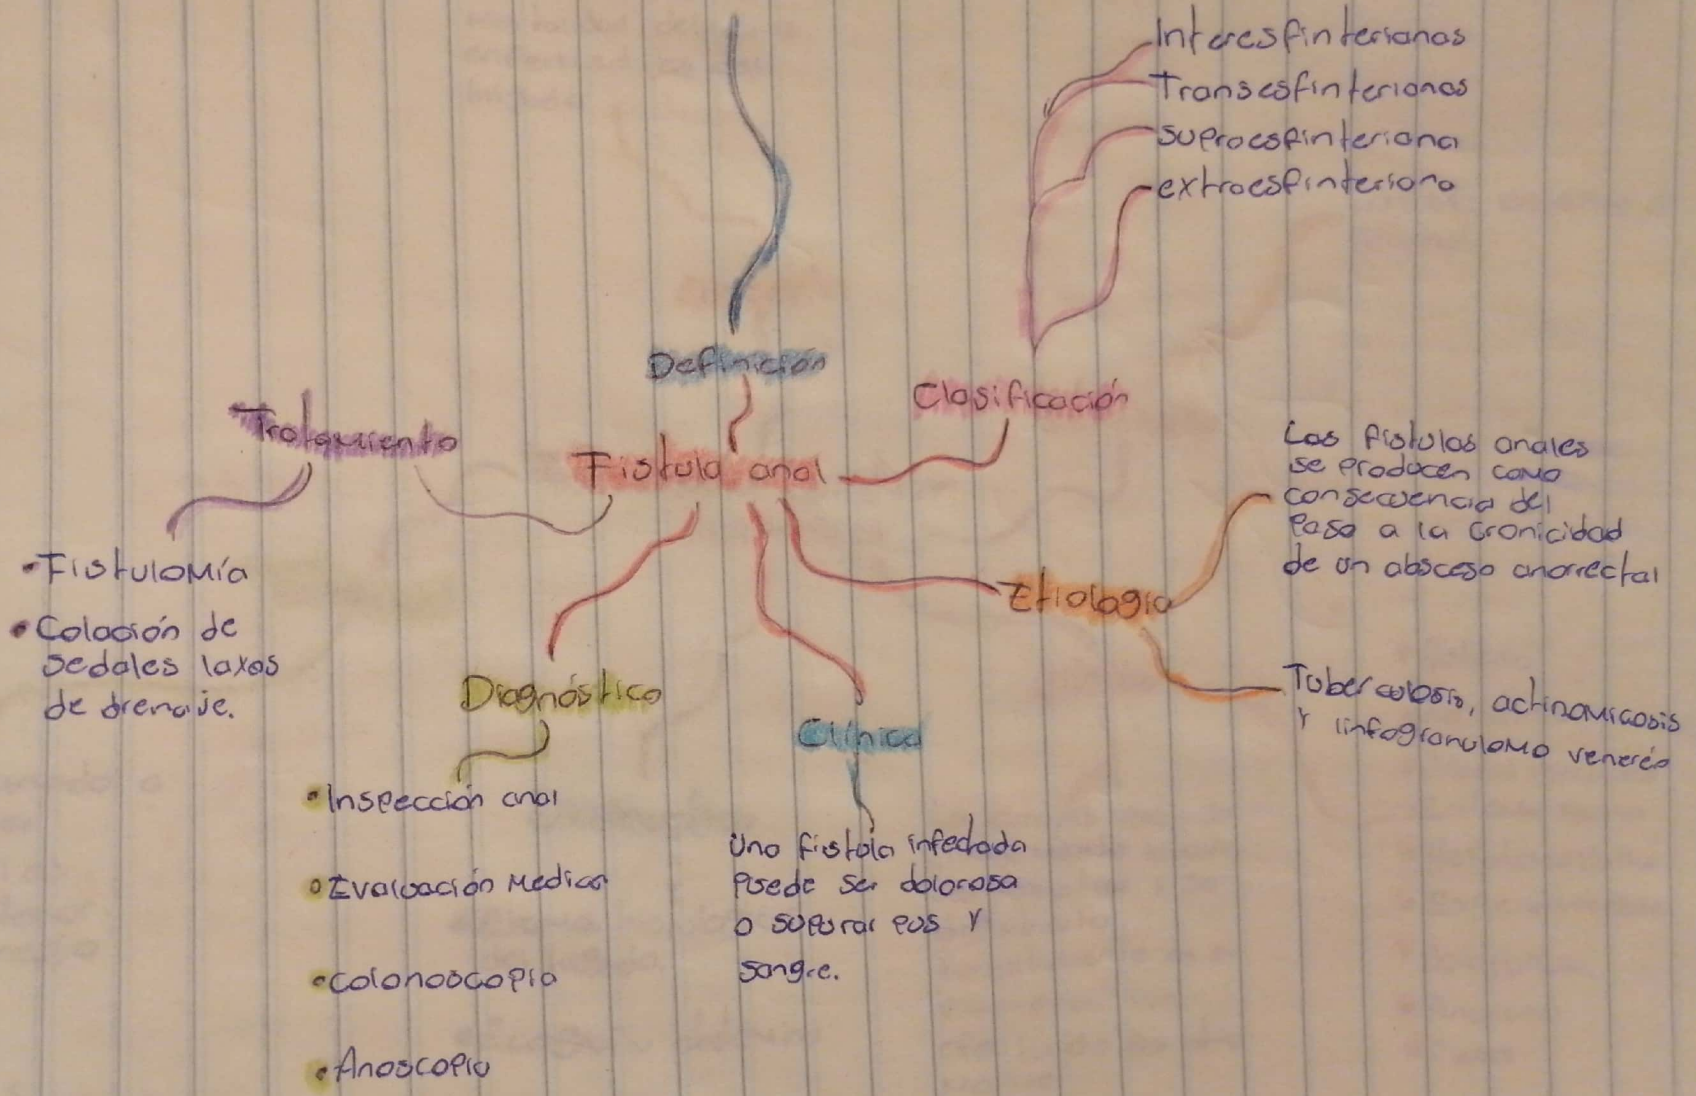 Interesfinterianas
Transesfinterianas
supraesfinteriana
extraesfinteriana
Definición
Clasificación
Tratamiento
Fistula anal
Las fistulas anales
se producen como
consecuencia del
Paso a la cronicidad
de un absceso anorrectal
Etiologia
Tuberculosis, actinomicosis
y linfogranulomo venereo
•Fistulomía
•Colación de
sedales laxos
de drenaje.
Diagnóstico
•Inspección anal
•Evaluación Medica
•colonoscopia
•Anoscopia
Clínica
Una fistola infectada
puede ser dolorosa
o supurar pus y
sangre.